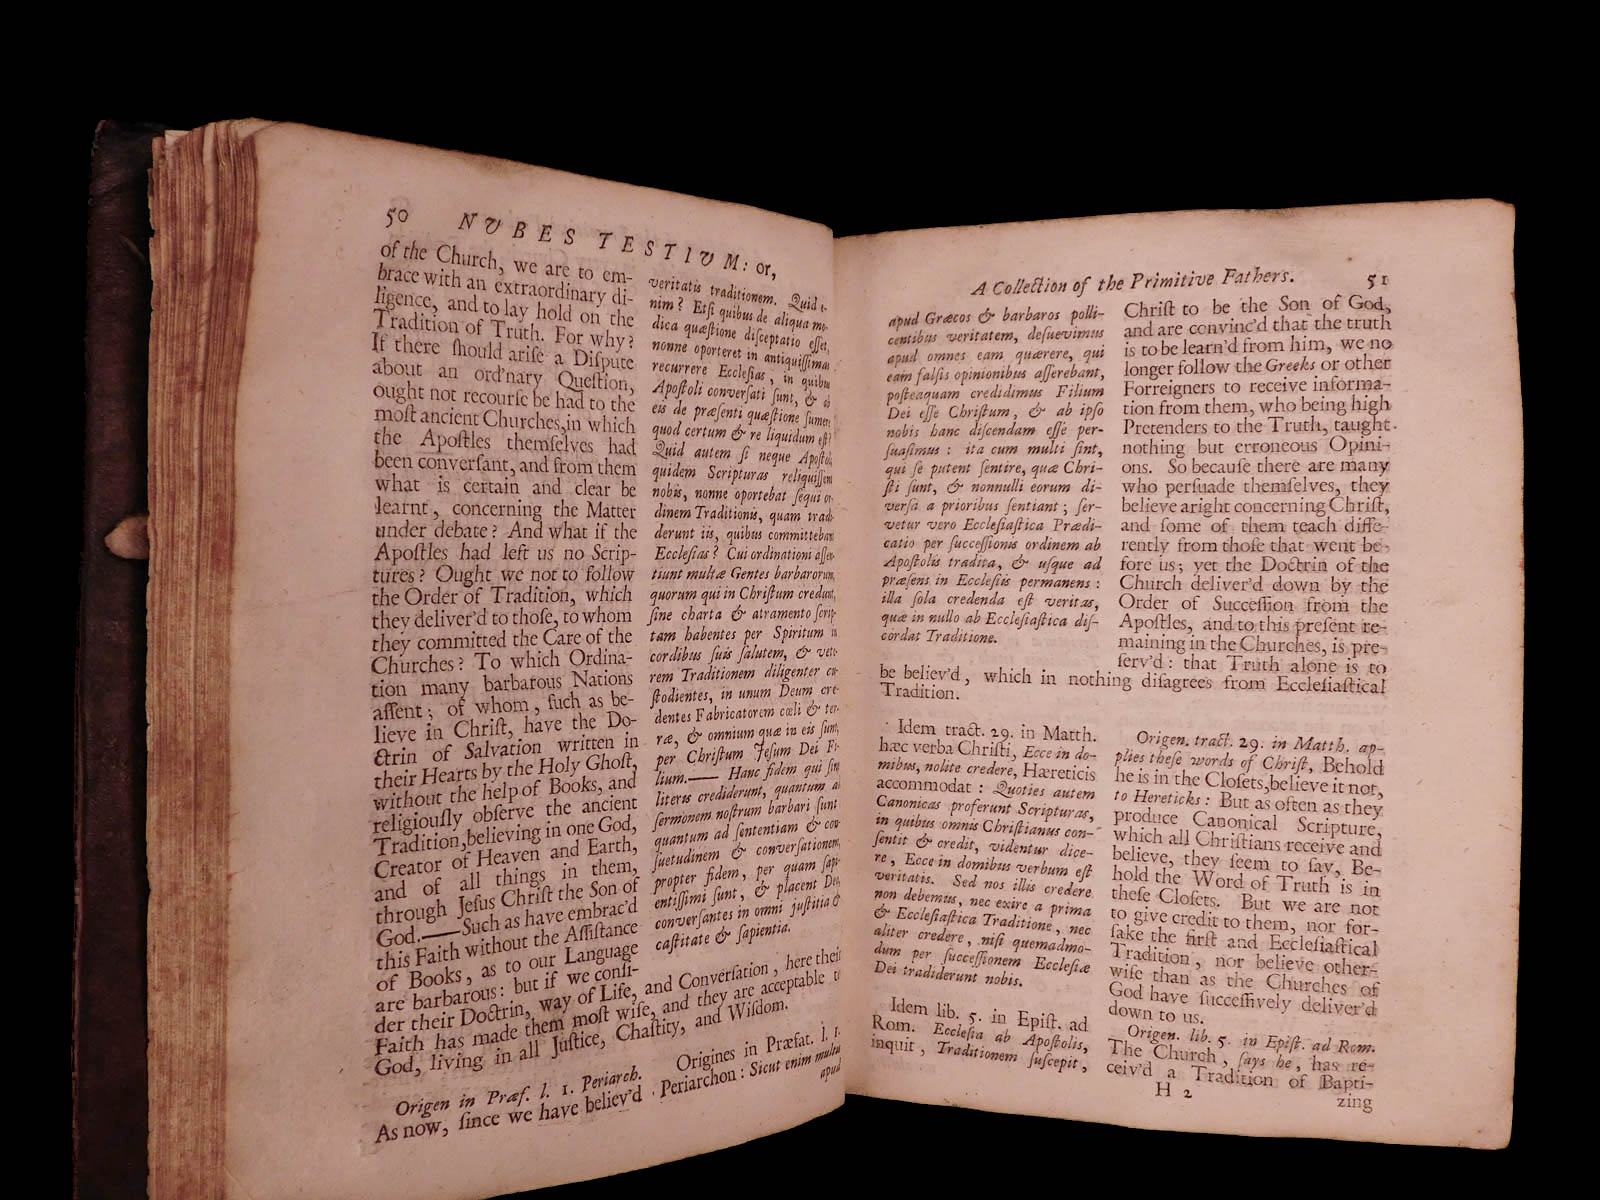 50 NVBES TESTIVM: or,
of the Church, we are to em-
brace with an extraordinary di-
ligence, and to lay hold on the
Tradition of Truth. For why?
If there ſhould ariſe a Diſpute
about an ord'nary Queſtion,
ought not recourſe be had to the
moſt ancient Churches, in which
the Apoſtles themſelves had
been converſant, and from them
what is certain and clear be
learnt, concerning the Matter
under debate? And what if the
Apoſtles had left us no Scrip-
tures? Ought we not to follow
the Order of Tradition, which
they deliver'd to thoſe, to whom
they committed the Care of the
Churches? To which Ordina-
tion many barbarous Nations
aſſent; of whom, ſuch as be-
lieve in Chriſt, have the Do-
ctrin of Salvation written in
their Hearts by the Holy Ghoſt,
without the help of Books, and
religiouſly obſerve the ancient
Tradition, believing in one God,
Creator of Heaven and Earth,
and of all things in them,
through Jeſus Chriſt the Son of
God.——Such as have embrac'd
this Faith without the Aſſiſtance
of Books, as to our Language
are barbarous: but if we conſi-
veritatis traditionem. Quid e-
nim? Etſi quibus de aliqua mo-
dica quæſtione diſceptatio eſſet,
nonne oporteret in antiquiſſimas
recurrere Eccleſias, in quibus
Apoſtoli converſati ſunt, & ab
eis de præſenti quæſtione ſumere
quod certum & re liquidum eſt?
Quid autem ſi neque Apoſtoli
quidem Scripturas reliquiſſent
nobis, nonne oportebat ſequi or-
dinem Traditionis, quam tradi-
derunt iis, quibus committebant
Eccleſias? Cui ordinationi aſſen-
tiunt multæ Gentes barbarorum,
quorum qui in Chriſtum credunt,
ſine charta & atramento ſcrip-
tam habentes per Spiritum in
cordibus ſuis ſalutem, & vete-
rem Traditionem diligenter cu-
ſtodientes, in unum Deum cre-
dentes Fabricatorem cœli & ter-
ræ, & omnium quæ in eis ſunt,
per Chriſtum Jeſum Dei Fi-
lium.—— Hanc fidem qui ſine
literis crediderunt, quantum ad
ſermonem noſtrum barbari ſunt
quantum ad ſententiam & con-
ſuetudinem & converſationem,
propter fidem, per quam ſapi-
entiſſimi ſunt, & placent Deo,
converſantes in omni juſtitia &
caſtitate & ſapientia.
der their Doctrin, way of Life, and Converſation, here their
Faith has made them moſt wiſe, and they are acceptable to
God, living in all Juſtice, Chaſtity, and Wiſdom.
Origen in Præf. l. 1. Periarch.
As now, ſince we have believ'd
Origines in Præfat. l. 1.
Periarchon: Sicut enim multis
apud
A Collection of the Primitive Fathers. 51
apud Græcos & barbaros polli-
centibus veritatem, deſuevimus
apud omnes eam quærere, qui
eam falſis opinionibus aſſerebant,
poſteaquam credidimus Filium
Dei eſſe Chriſtum, & ab ipſo
nobis hanc diſcendam eſſe per-
ſuaſimus: ita cum multi ſint,
qui ſe putent ſentire, quæ Chri-
ſti ſunt, & nonnulli eorum di-
verſa a prioribus ſentiant; ſer-
vetur vero Eccleſiaſtica Prædi-
catio per ſucceſſionis ordinem ab
Apoſtolis tradita, & uſque ad
præſens in Eccleſiis permanens:
illa ſola credenda eſt veritas,
quæ in nullo ab Eccleſiaſtica diſ-
cordat Traditione.
Chriſt to be the Son of God,
and are convinc'd that the truth
is to be learn'd from him, we no
longer follow the Greeks or other
Forreigners to receive informa-
tion from them, who being high
Pretenders to the Truth, taught
nothing but erroneous Opini-
ons. So becauſe there are many
who perſuade themſelves, they
believe aright concerning Chriſt,
and ſome of them teach diffe-
rently from thoſe that went be-
fore us; yet the Doctrin of the
Church deliver'd down by the
Order of Succeſſion from the
Apoſtles, and to this preſent re-
maining in the Churches, is pre-
ſerv'd: that Truth alone is to
be believ'd, which in nothing diſagrees from Eccleſiaſtical
Tradition.
Idem tract. 29. in Matth.
hæc verba Chriſti, Ecce in do-
mibus, nolite credere, Hæreticis
accommodat: Quoties autem
Canonicas proferunt Scripturas,
in quibus omnis Chriſtianus con-
ſentit & credit, videntur dice-
re, Ecce in domibus verbum eſt
veritatis. Sed nos illis credere
non debemus, nec exire a prima
& Eccleſiaſtica Traditione, nec
aliter credere, niſi quemadmo-
dum per ſucceſſionem Eccleſiæ
Dei tradiderunt nobis.
Idem lib. 5. in Epiſt. ad
Rom. Eccleſia ab Apoſtolis,
inquit, Traditionem ſuſcepit,
Origen. tract. 29. in Matth. ap-
plies theſe words of Chriſt, Behold
he is in the Cloſets, believe it not,
to Hereticks: But as often as they
produce Canonical Scripture,
which all Chriſtians receive and
believe, they ſeem to ſay, Be-
hold the Word of Truth is in
theſe Cloſets. But we are not
to give credit to them, nor for-
ſake the firſt and Eccleſiaſtical
Tradition, nor believe other-
wiſe than as the Churches of
God have ſucceſſively deliver'd
down to us.
Origen. lib. 5. in Epiſt. ad Rom.
The Church, ſays he, has re-
ceiv'd a Tradition of Bapti-
H 2
zing